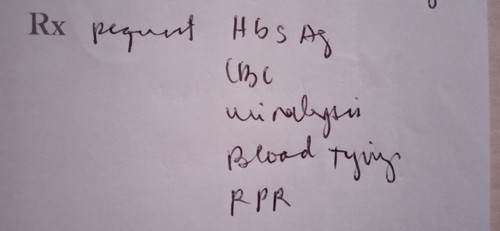 Rx request HbsAg
CBC
urinalysis
Blood typing
RPR